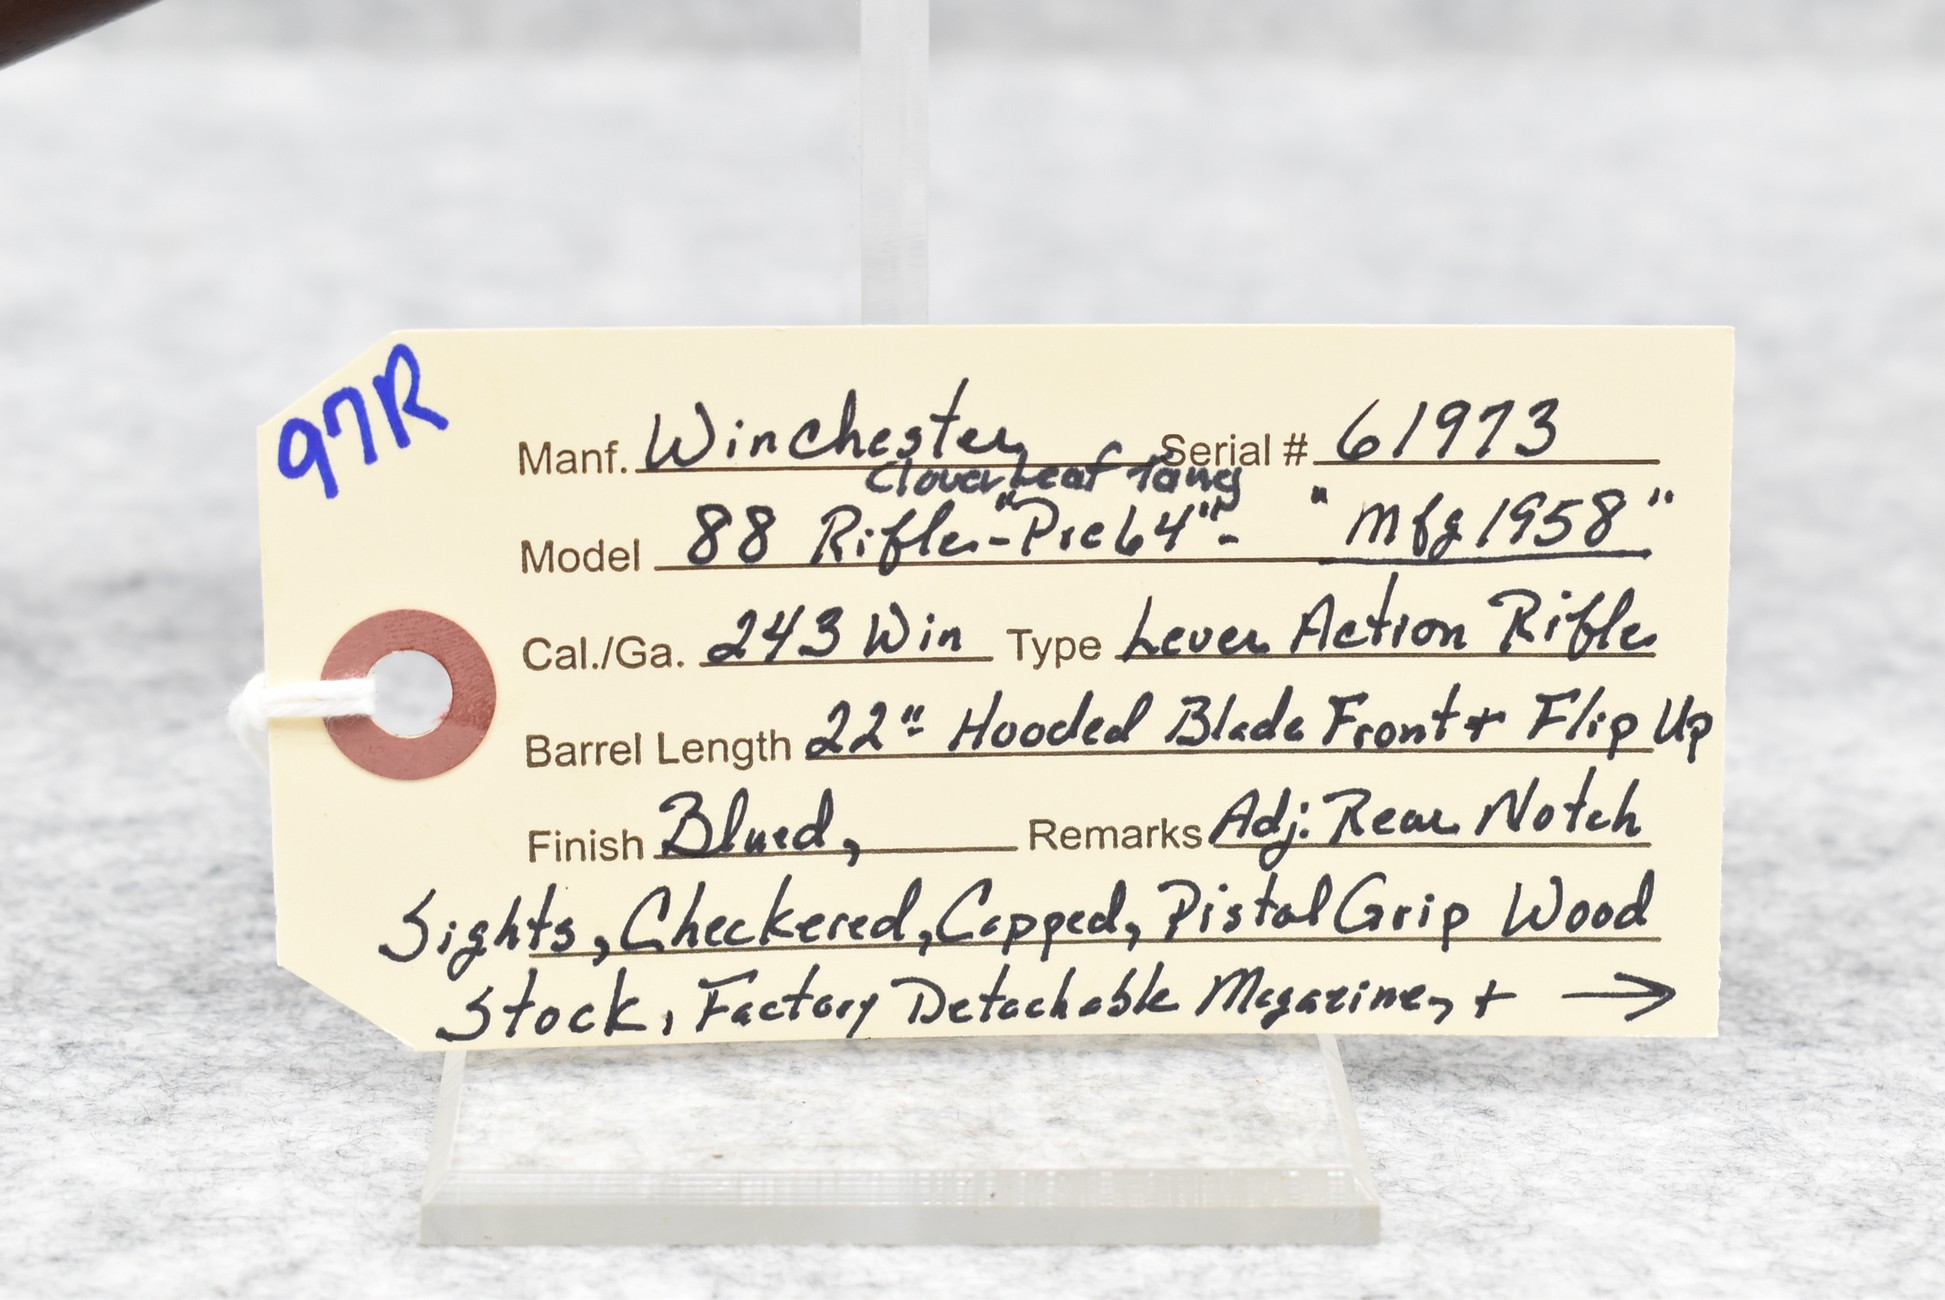 97R
Manf. Winchester Serial # 61973
Cloverleaf Tang
Model 88 Rifle - "Pre 64" - "Mfg 1958"
Cal./Ga. 243 Win Type Lever Action Rifle
Barrel Length 22" Hooded Blade Front + Flip Up
Finish Blued, Remarks Adj. Rear Notch
Sights, Checkered, Capped, Pistol Grip Wood
Stock, Factory Detachable Magazine, + →